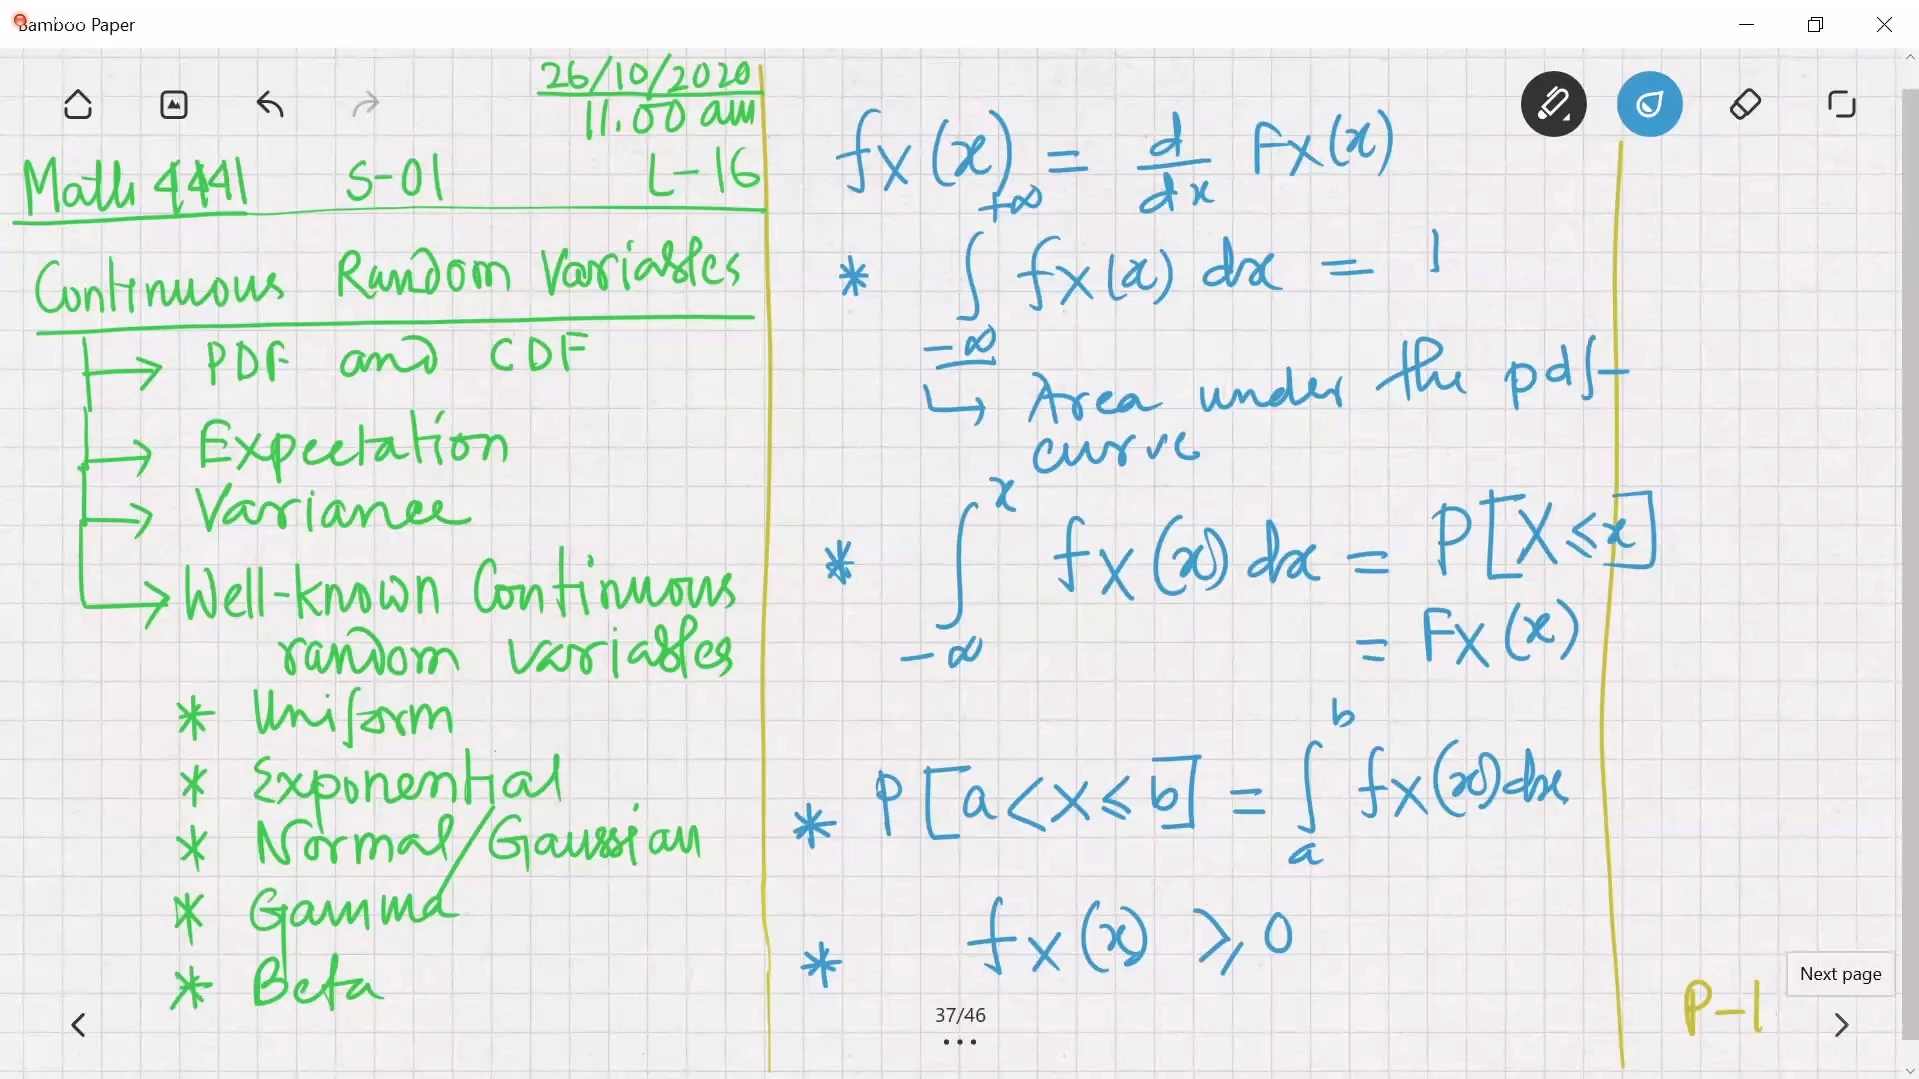 Bamboo Paper
26/10/2020
11.00 am
Math 4441 S-01 L-16
Continuous Random Variables
→ PDF and CDF
→ Expectation
→ Variance
→ Well-known Continuous
random variables
* Uniform
* Exponential
* Normal/Gaussian
* Gamma
* Beta
fX(x) = d/dx FX(x)
* ∫_{-∞}^{+∞} fX(x) dx = 1
↳ Area under the pdf
curve
* ∫_{-∞}^{x} fX(x) dx = P[X≤x]
= FX(x)
* P[a<X≤b] = ∫_{a}^{b} fX(x)dx
* fX(x) ≥ 0
Next page
P-1
37/46